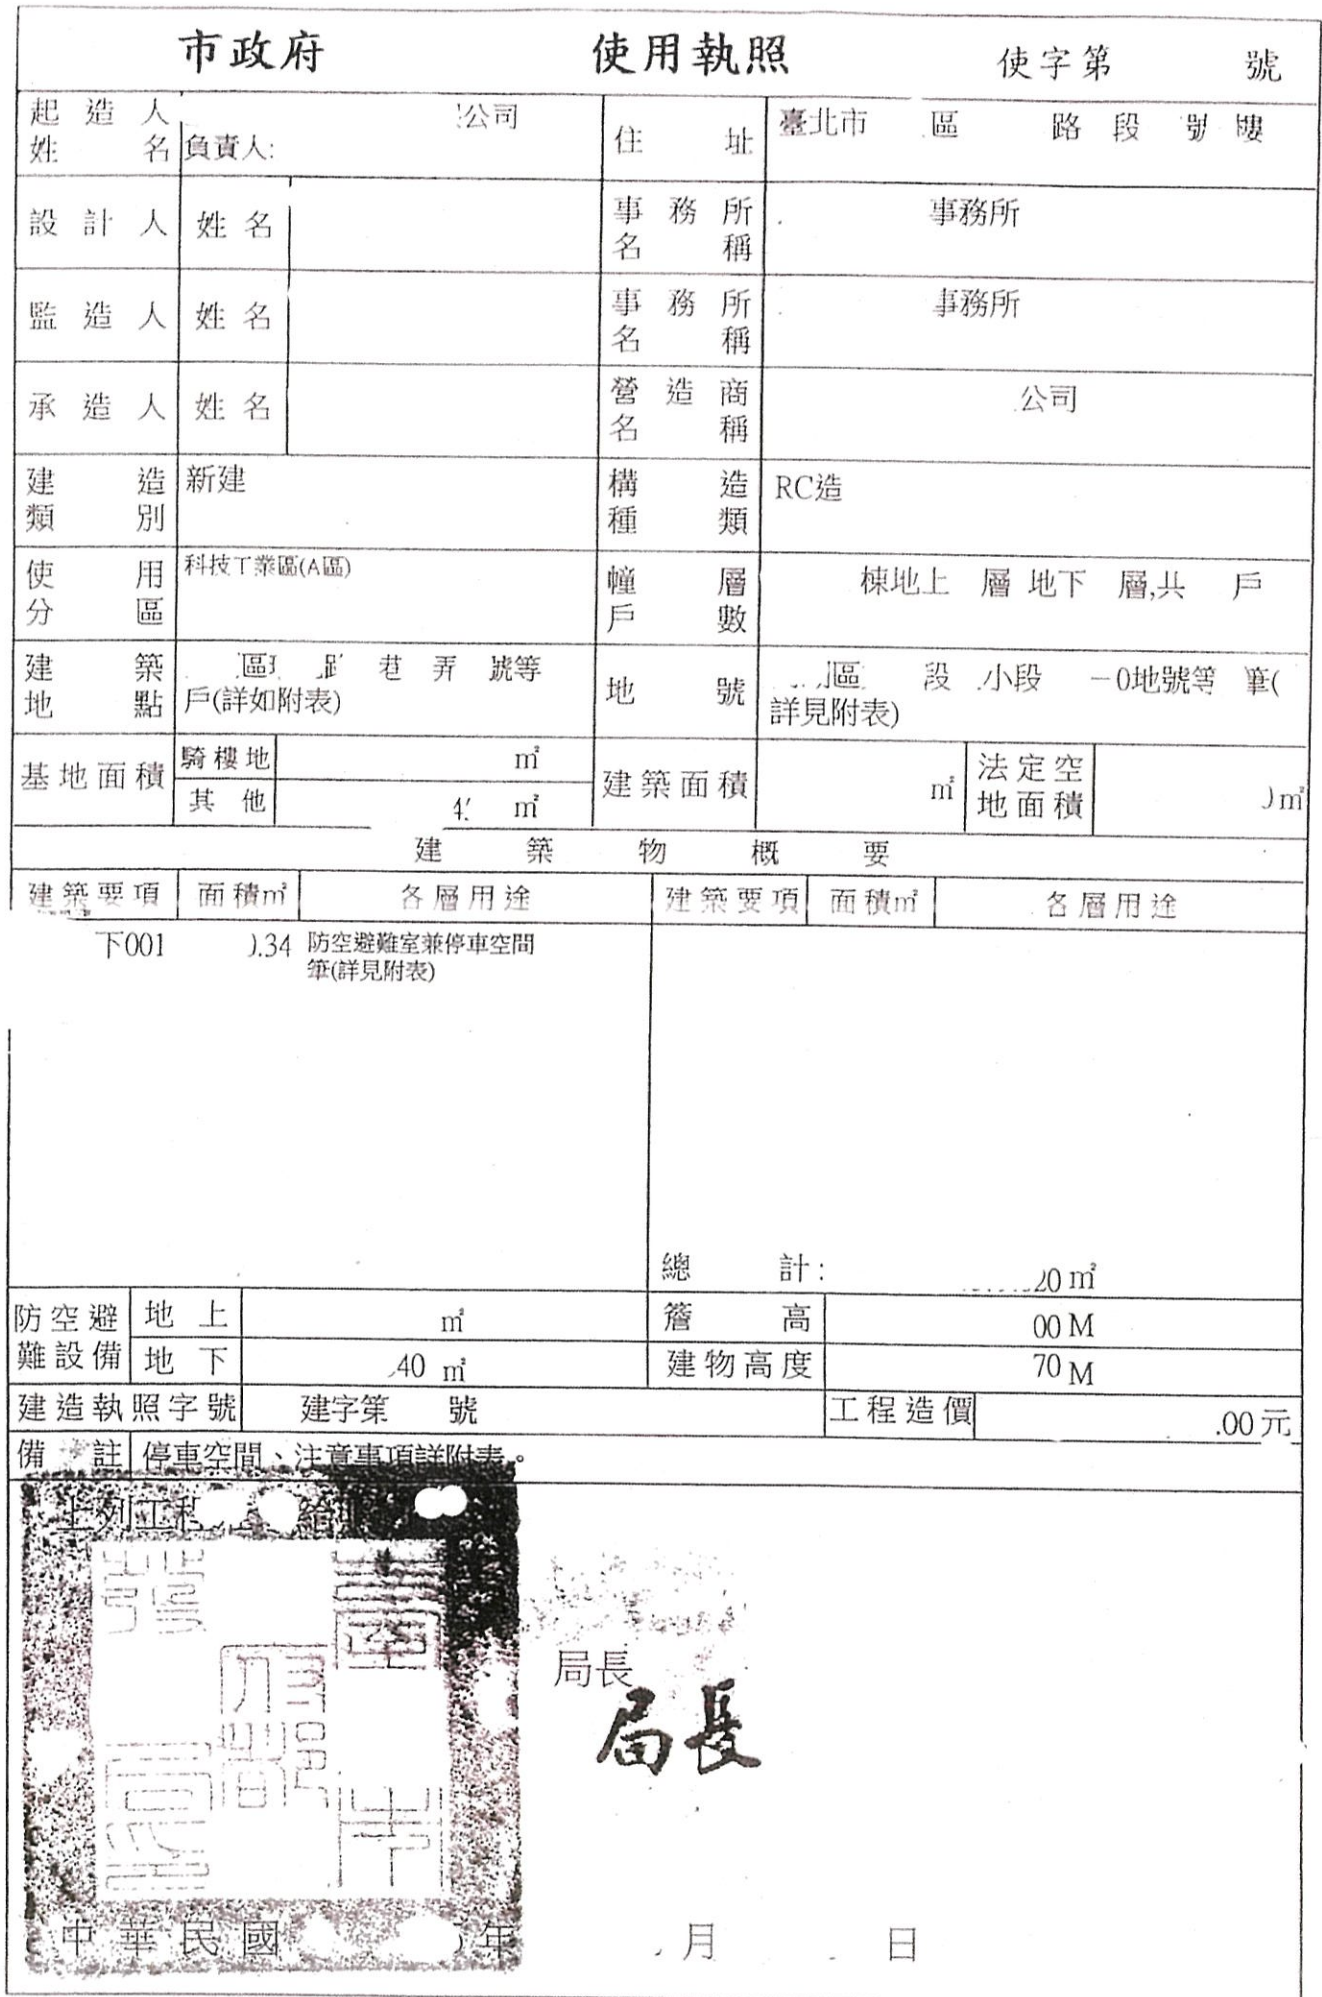 市政府 使用執照 使字第 號
起造人姓名 公司 住址 臺北市 區 路 段 號 樓
負責人:
設計人 姓名 事務所名稱 事務所
監造人 姓名 事務所名稱 事務所
承造人 姓名 營造商名稱 公司
建造類別 新建 構造種類 RC造
使用分區 科技工業區(A區) 幢層戶數 棟地上 層 地下 層,共 戶
建築地點 區 路 巷 弄 號等 地號 區 段 小段 -0地號等 筆(
戶(詳如附表) 詳見附表)
基地面積 騎樓地 ㎡ 建築面積 ㎡ 法定空地面積 ㎡
其他 ㎡
建築物概要
建築要項 面積㎡ 各層用途 建築要項 面積㎡ 各層用途
下001 .34 防空避難室兼停車空間
筆(詳見附表)
總計: 20㎡
防空避難設備 地上 ㎡ 簷高 00 M
地下 .40 ㎡ 建物高度 70 M
建造執照字號 建字第 號 工程造價 .00元
備註 停車空間、注意事項詳附表。
上列工程 給
局長
局長
中華民國 年 月 日